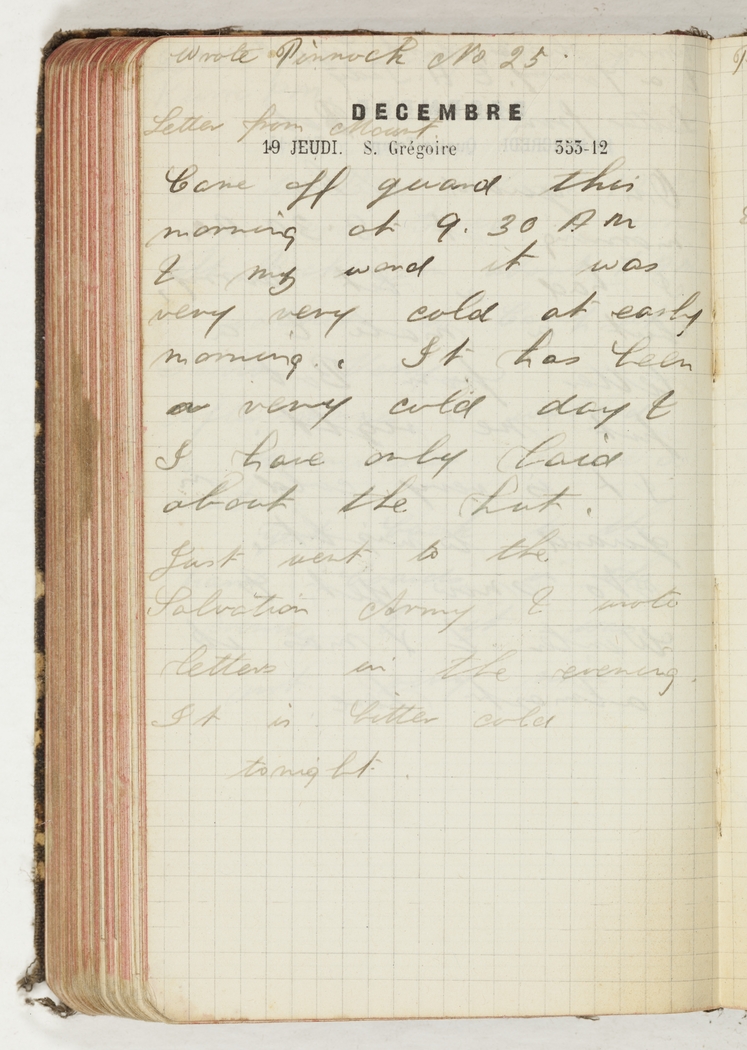 Wrote Pinnock No 25.
DECEMBRE
Letter from Mount
19 JEUDI. S. Grégoire 353-12
Came off guard this
morning at 9.30 AM
& my word it was
very very cold at early
morning. It has been
a very cold day &
I have only laid
about the hut.
Just went to the
Salvation Army & wrote
letters in the evening.
It is bitter cold
tonight.